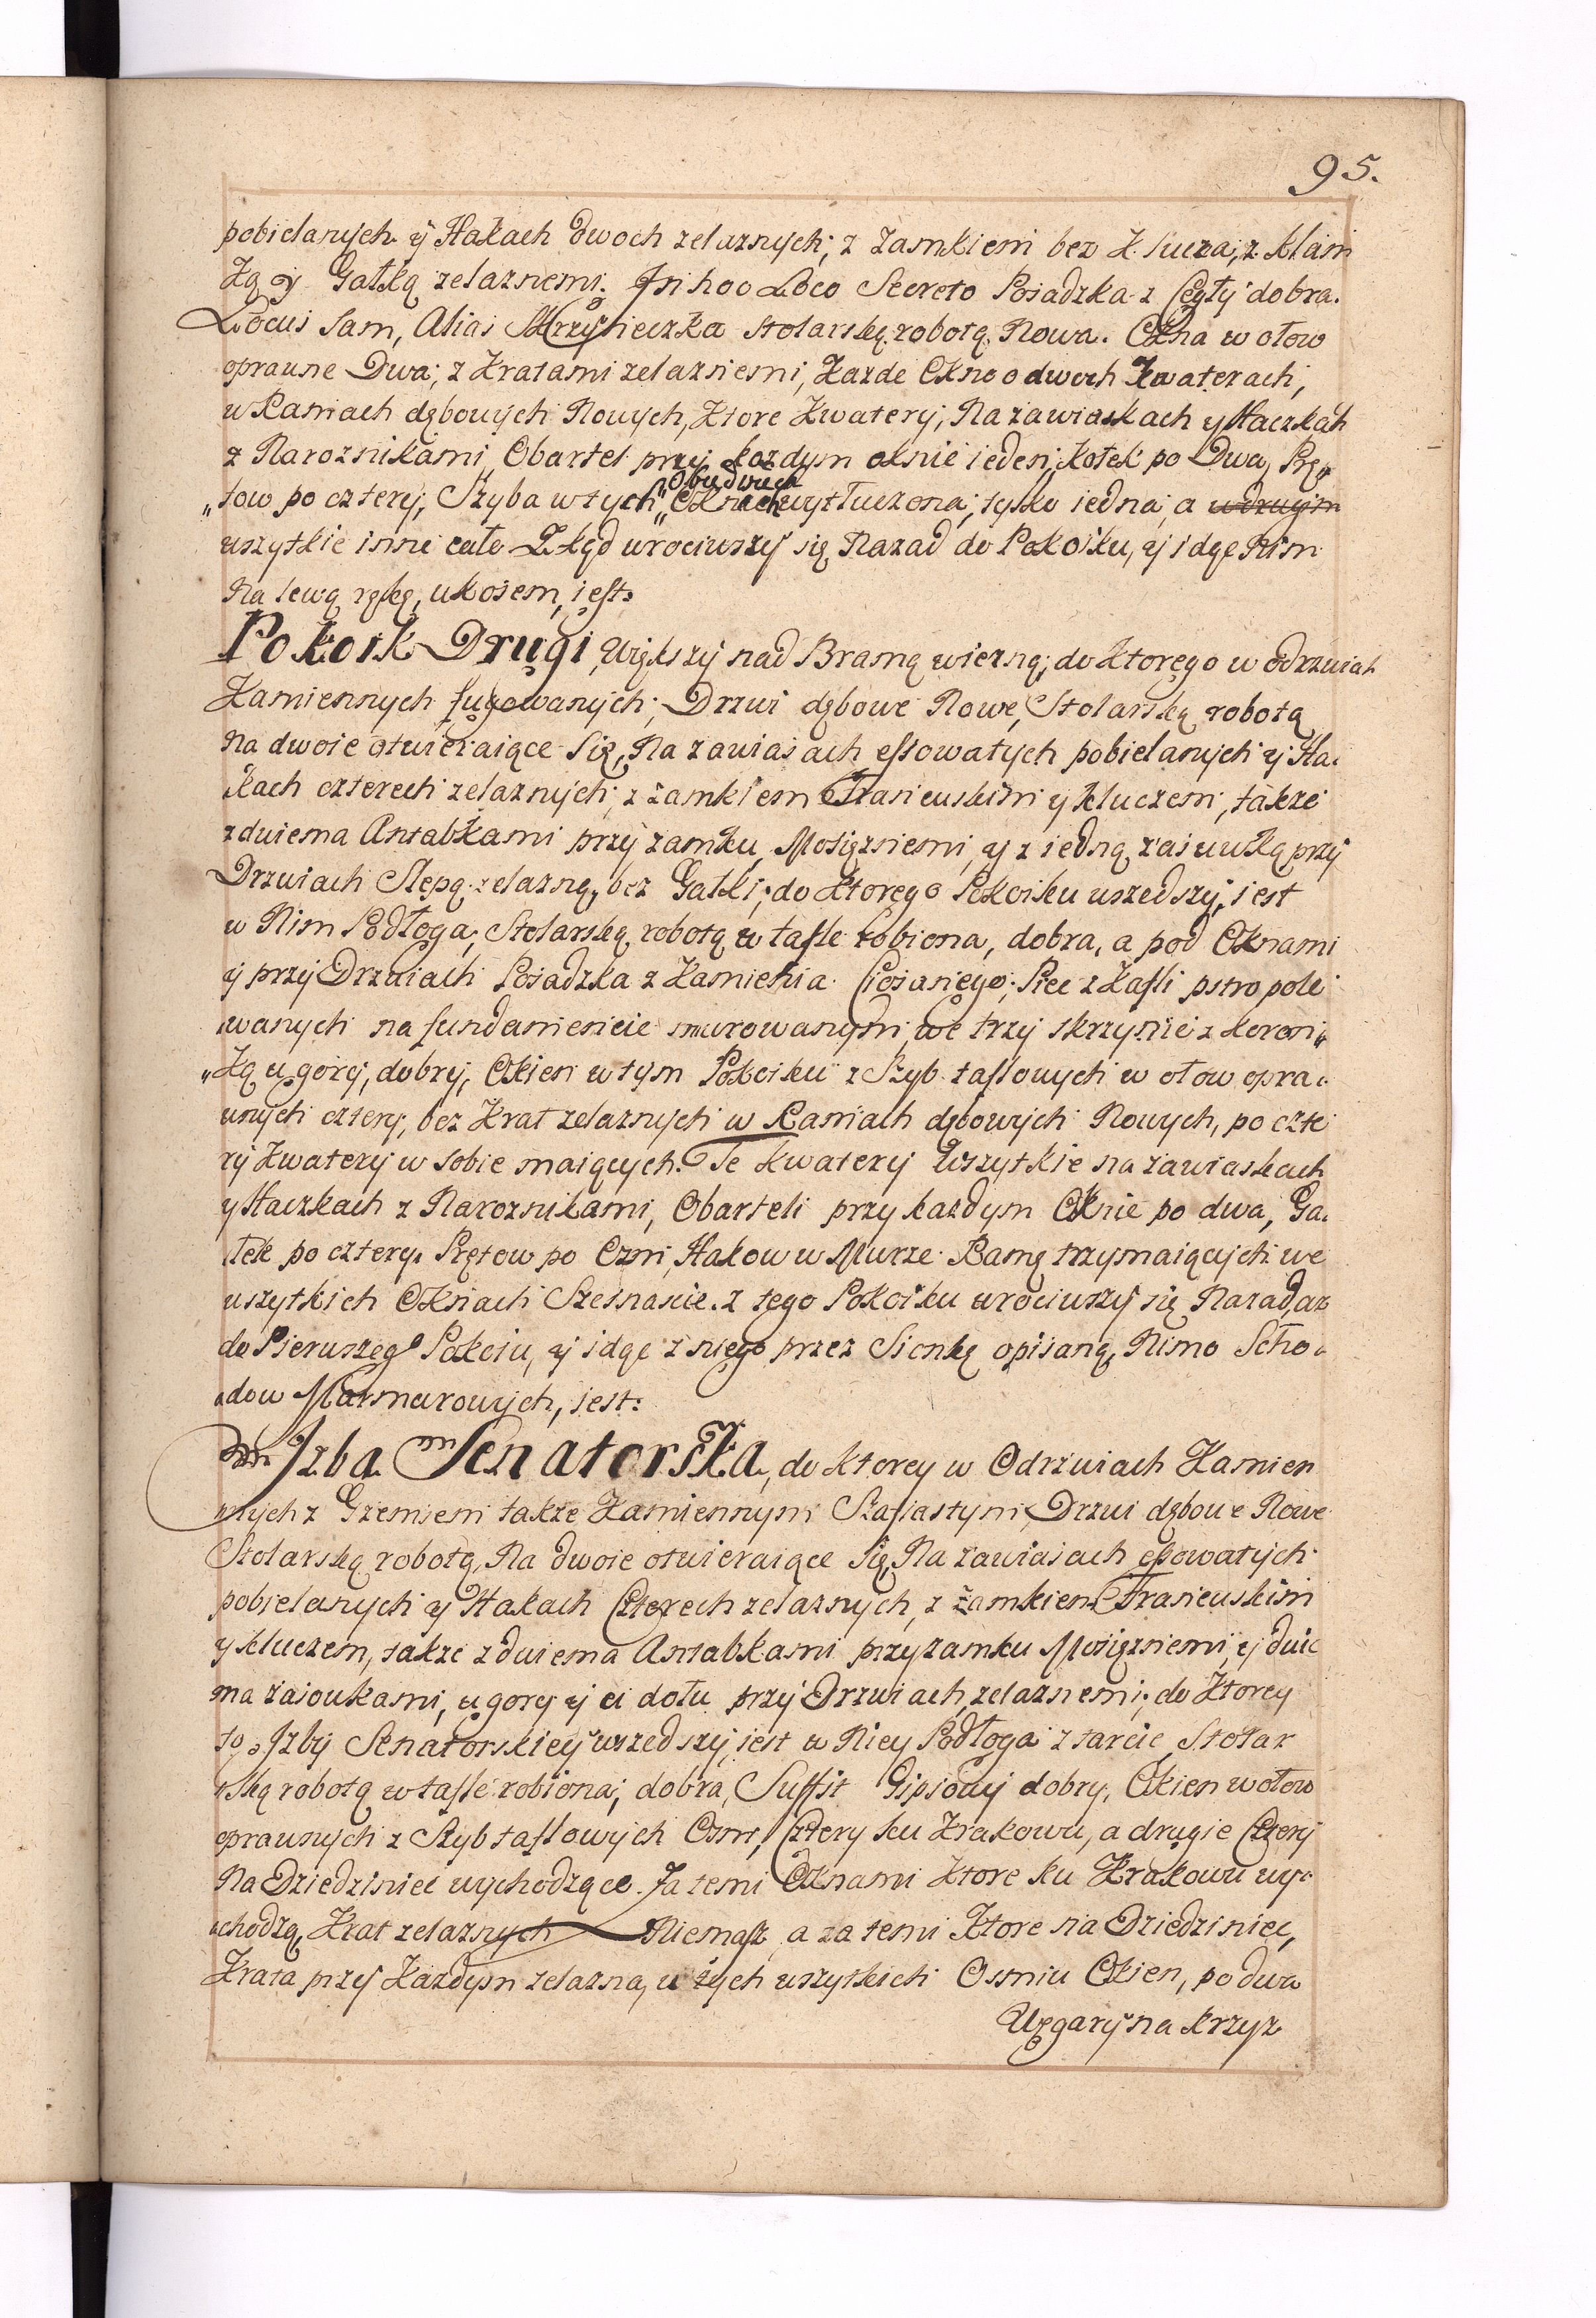 95.
pobielanych y Hakach dwoch zelaznych; z Zamkiem bez Klucza, z Klam
Ką y Gałką zelaznemi. In hoc Loco Secreto Posadzka z Cegły dobra.
Locus sam, Alias Skrzynieczka stolarską robotą Nowa. Okna w ołow
oprawne Dwa; z Kratami zelaznemi, Kazde Okno o dwoch Kwaterach,
w Ramach dębowych Nowych, Ktore Kwatery, Na zawiaskach y Haczkach
z Naroznikami, Obartel przy kozdym oknie ieden, Kołek po Dwa, Prę„
„tow po cztery, Szyba w tych „Obudwuch Oknach wytłuczona, tylko iedna, a w drugim
wszytkie inne całe Zkąd wrociwszy się Nazad do Pokoiku, y idąc Nim
Na lewą rękę, ukosem, iest:
Pokoik Drugi, Większy nad Bramą wiezną; do Ktorego w odrzwiach
Kamiennych fugowanych; Drzwi dębowe Nowe, Stolarską robotą
na dwoie otwieraiące Się, Na zawiasach essowatych pobielanych y Ha„
kach czterech zelaznych; z zamkiem Francuskim y kluczem, także
z dwiema Antabkami przy zamku, Mosięznemi, y z iedną zasuwką przy
Drzwiach Slepą zelazną, bez Gałki; do Ktorego Pokoiku wszedszy, iest
w Nim Podłoga, Stolarską robotą w tafle robiona, dobra, a pod Oknami
y przy Drzwiach Posadzka z Kamienia Ciosanego; Piec z Kafli pstro pole
wanych na fundamencie murowanym, we trzy skrzynie z Koron„
„Ką u gory, dobry, Okien w tym Pokoiku z Szyb taflowych w ołow opra„
wnych cztery, bez Krat zelaznych w Ramach dębowych Nowych, po czte
ry Kwatery w sobie maiących. Te Kwatery Wszytkie na zawiaskach
y Haczkach z Naroznikami, Obarteli przy kazdym Oknie po dwa, Ga„
łek po cztery. Prętow po Ozm, Hakow w Murze Ramę trzymaiących we
wszytkich Oknach Szesnascie. z tego Pokoiku wrociwszy się Nazad, az
do Pierwszego Pokoiu, y idąc z niego przez Sionkę opisaną, Nimo Scho„
„dow Marmurowych, iest:
Izba Senatorska, do Ktorey w Odrzwiach Kamien
nych z Gzemsem takze Kamiennym Szafiastym, Drzwi dębowe Nowe
Stolarską robotą, Na dwoie otwieraiące Się, Na zawiasach essowatych
pobielanych y Hakach Czterech zelaznych, z zamkiem Francuskim
y kluczem, takze z dwiema Antabkami przy zamku Mosięznemi, y dwie
ma zasowkami, u gory y u dołu przy Drzwiach zelaznemi; do Ktorey
to Izby Senatorskiey wszedszy, iest w Niey Podłoga z tarcic Stolar
„Ską robotą w tafle robiona, dobra, Suffit Gipsowy dobry, Okien w ołow
oprawnych z Szyb taflowych Osm, Cztery ku Krakowu, a drugie Cztery
Na Dziedziniec wychodzące. Za temi Oknami Ktore ku Krakowu wy„
„chodzą, Krat zelaznych Niemasz, a za temi Ktore na Dziedziniec,
Krata przy Kazdym zelazna, u tych wszytkich Osmiu Okien, po dwa
Węgary na krzyz